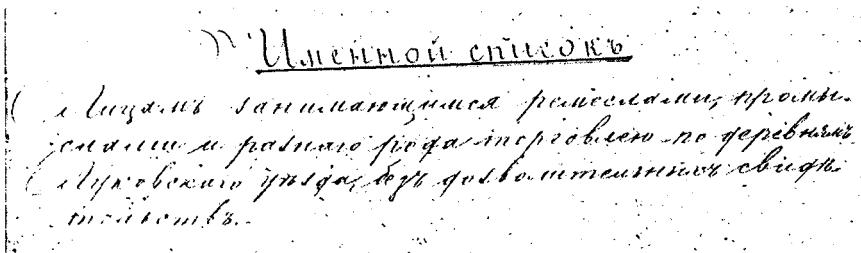 Именной списокъ
Лицамъ занимающимся ремеслами, промы-
слами и разнаго рода торговлею по деревнямъ
Луковскаго уѣзда, безъ дозволительныхъ свидѣ-
тельствъ.